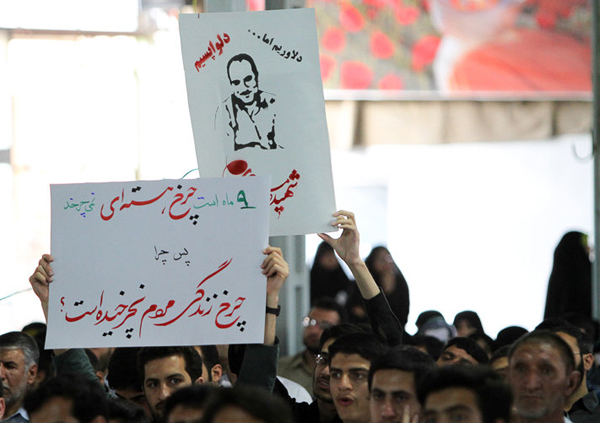 دلاوریم اما...
دلواپسیم
شهید
۹ ماه است چرخ هسته‌ای نمی‌چرخد
پس چرا
چرخ زندگی مردم نچرخیده است؟